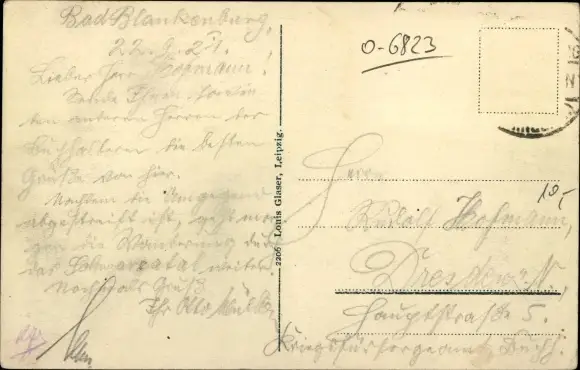 Bad Blankenburg,
22.9.27.
Lieber Herr Hofmann!
Sende Ihnen, sowie
den anderen Herren der
Buchhalterei die besten
Grüße von hier.
Nachdem die Umgegend
abgestreift ist, geht mor
gen die Wanderung durch
das Schwarzatal weiter.
Nochmals Gruß
Ihr Otto
2206 Louis Glaser, Leipzig.
0-6823
10,-
Herrn
Rudolf Hofmann,
Dresden-N.,
Hauptstraße 5.
Kriegsfürsorgeamt, Buchh.